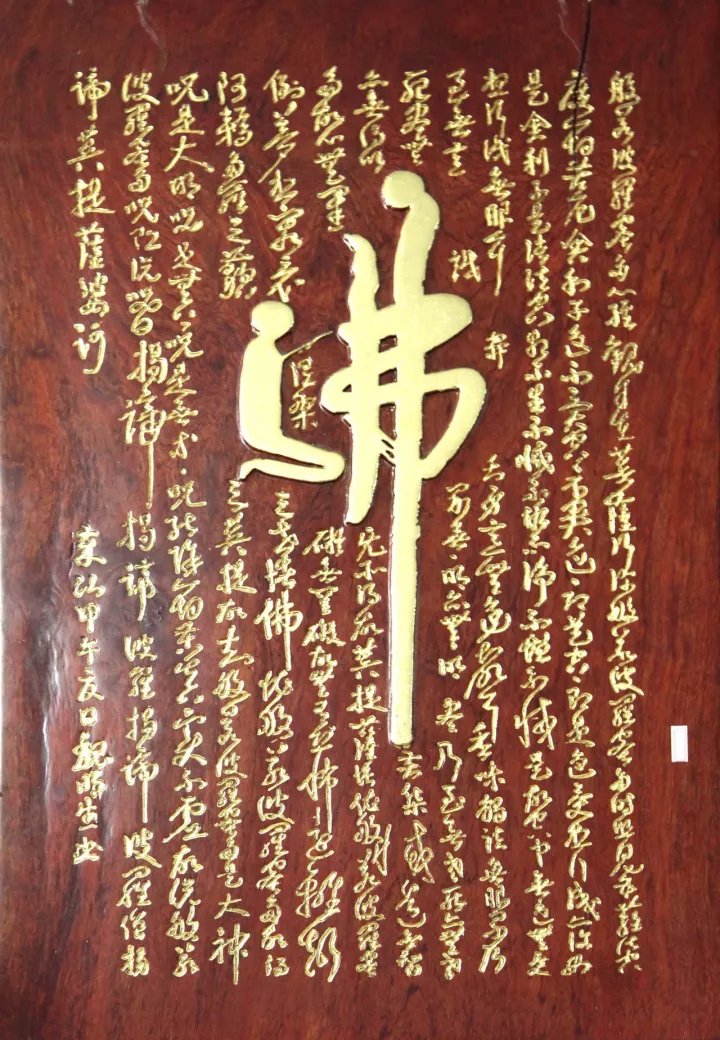 般若波羅蜜多心經觀自在菩薩行深般若波羅蜜多時照見五蘊皆空
度一切苦厄舍利子色不異空空不異色色即是空空即是色受想行識亦復如
是舍利子是諸法空相不生不滅不垢不淨不增不減是故空中無色無受
想行識無眼耳鼻舌身意無色聲香味觸法無眼界乃
至無意識界無無明亦無無明盡乃至無老死亦無老
死盡無苦集滅道無智
亦無得以無所得故菩提薩埵依般若波羅蜜
多故心無罣礙無罣礙故無有恐怖遠離顛
倒夢想究竟涅槃三世諸佛依般若波羅蜜多故得
阿耨多羅三藐三菩提故知般若波羅蜜多是大神
咒是大明咒是無上咒是無等等咒能除一切苦真實不虛故說般若
波羅蜜多咒即說咒曰揭諦揭諦波羅揭諦波羅僧揭
諦菩提薩婆訶
甲午
佛